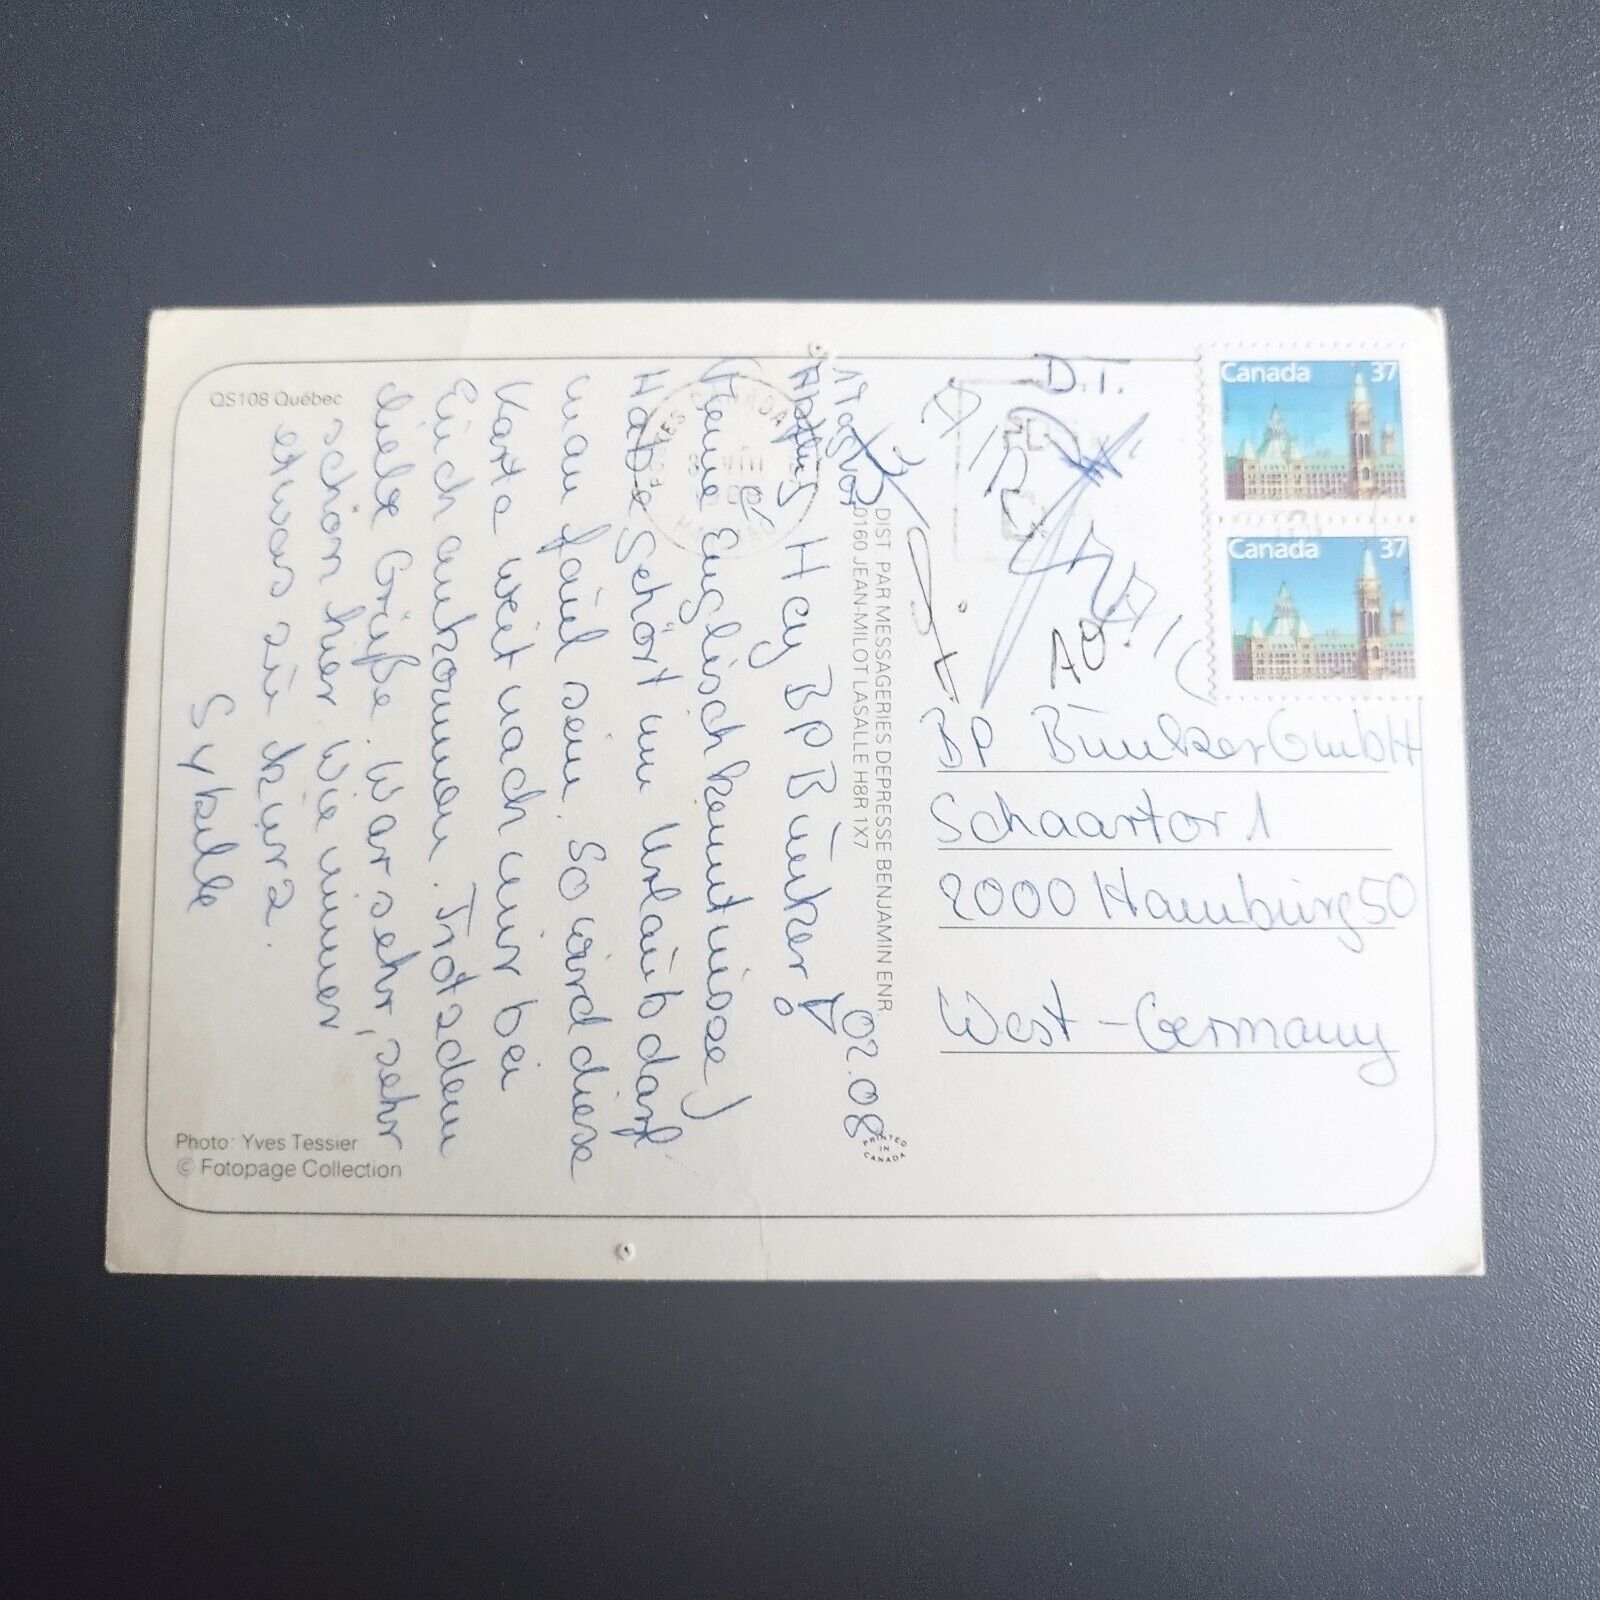 QS108 Québec
02.08
Hey BP Bunker!
(Keine Englischkenntnisse)
Habe gehört im Urlaub darf
man faul sein. So wird diese
Karte weit nach mir bei
Euch ankommen. Trotzdem
liebe Grüße. War sehr, sehr
schön hier. Wie immer
etwas zu kurz.
Sybille
Photo: Yves Tessier
© Fotopage Collection
DIST PAR MESSAGERIES DEPRESSE BENJAMIN ENR
0160 JEAN-MILOT LASALLE H8R 1X7
PRINTED IN CANADA
POSTES CANADA
D.T.
AIR MAIL
AO
Canada 37
Canada 37
BP Bunker GmbH
Schaartor 1
2000 Hamburg 50
West-Germany